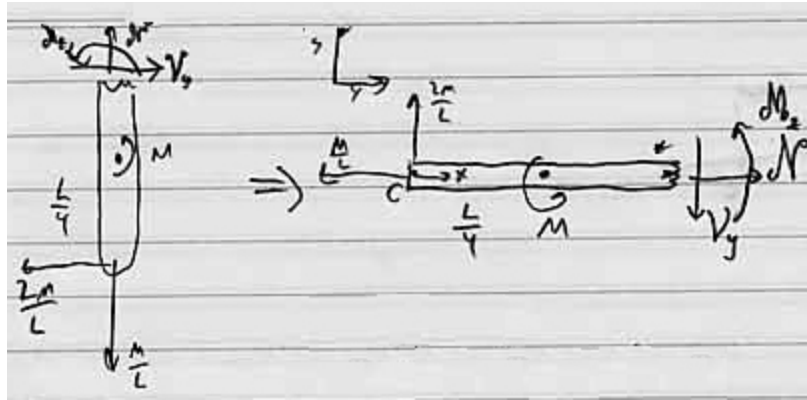 N
V_y
M
L/4
2M/L
M/L
⇒
y
2M/L
M/L
C
x
L/4
M
M_z
N
V_y